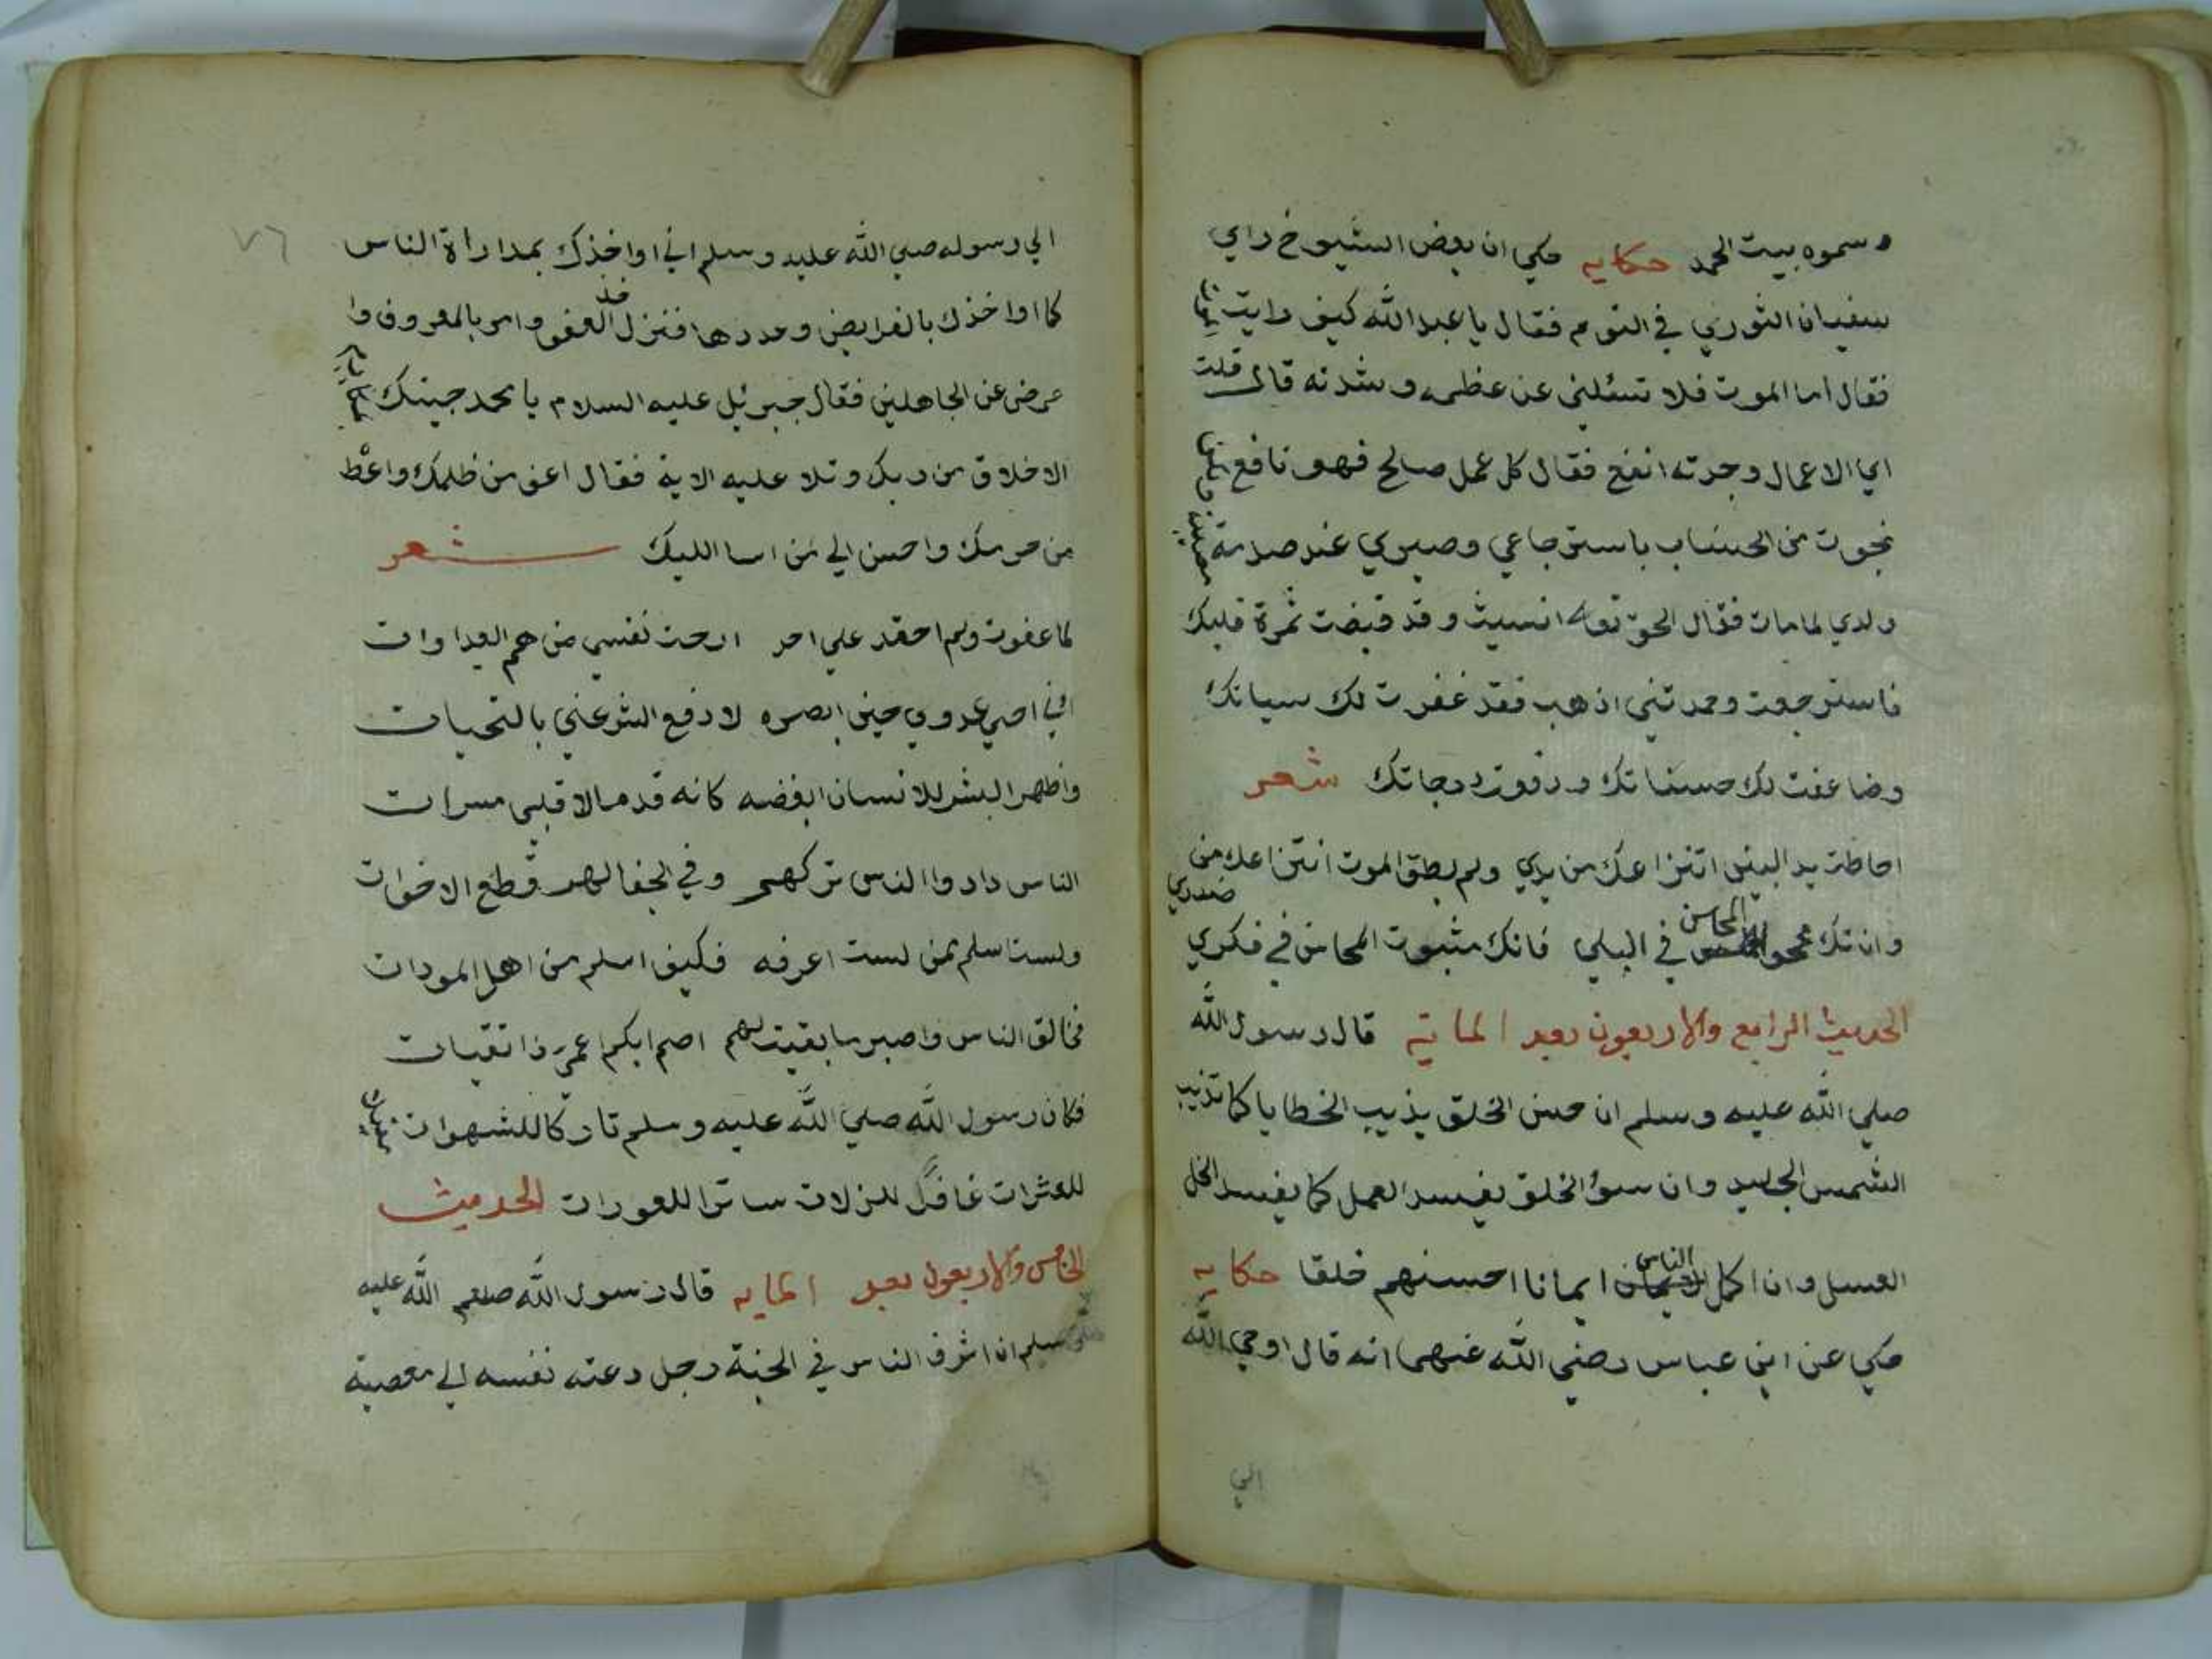 وسموه بيت الحمد حكايه حكي ان بعض الشيوخ راي
سفيان الثوري في النوم فقال يا عبد الله كيف رايت الموت
فقال اما الموت فلا تسئلني عن عظمه وشدته قال قلت
اي الاعمال وجدته انفع فقال كل عمل صالح فهو نافع ولكن
نجوت من الحساب باسترجاعي وصبري عند صدمة مصيبة
ولدي لما مات فقال الحق تعالى انسيت وقد قبضت ثمرة قلبك
فاسترجعت وحمدتني اذهب فقد غفرت لك سياتك
وضاعفت لك حسناتك ورفعت درجاتك شعر
احاطت يد البين انتزاعك من يدي ولم يطق الموت انتزاعك من صدري
وان تك ممحو المحاسن في البلي فانك مثبوت المحاسن في فكري
الحديث الرابع والاربعون بعد الماية قال رسول الله
صلي الله عليه وسلم ان حسن الخلق يذيب الخطايا كما تذيب
الشمس الجليد وان سؤ الخلق يفسد العمل كما يفسد الخل
العسل وان اكمل الناس ايمانا احسنهم خلقا حكايه
حكي عن ابن عباس رضي الله عنهما انه قال اوحي الله
الي
٧٦
الي رسوله صلي الله عليه وسلم اني اواخذك بمداراة الناس
كما اواخذك بالفرايض وحددها فنزل خذ العفو وامر بالمعروف وا
عرض عن الجاهلين فقال جبرئيل عليه السلام يا محمد جيتك بمكارم
الاخلاق من ربك وتلا عليه الاية فقال اعف من ظلمك واعط
من حرمك واحسن الي من اسا اليك شعر
لما عفوت ولم احقد علي احد ارحت نفسي من هم العداوات
اني احيي عدوي حين ابصره لادفع الشر عني بالتحيات
واظهر البشر للانسان ابغضه كانه قد ملا قلبي مسرات
الناس داد وا الناس تركهم وفي الجفا لهم قطع الاخوات
ولست اسلم ممن لست اعرفه فكيف اسلم من اهل المودات
فخالق الناس واصبر ما بقيت لهم اصم ابكم اعمى ذا تقيات
فكان رسول الله صلي الله عليه وسلم تاركا للشهوات
للعثرات غافرا للزلات ساترا للعورات الحديث
الخامس والاربعون بعد المايه قال رسول الله صلعم الله عليه
وسلم ان اشرف الناس في الجنة رجل دعته نفسه الي معصية